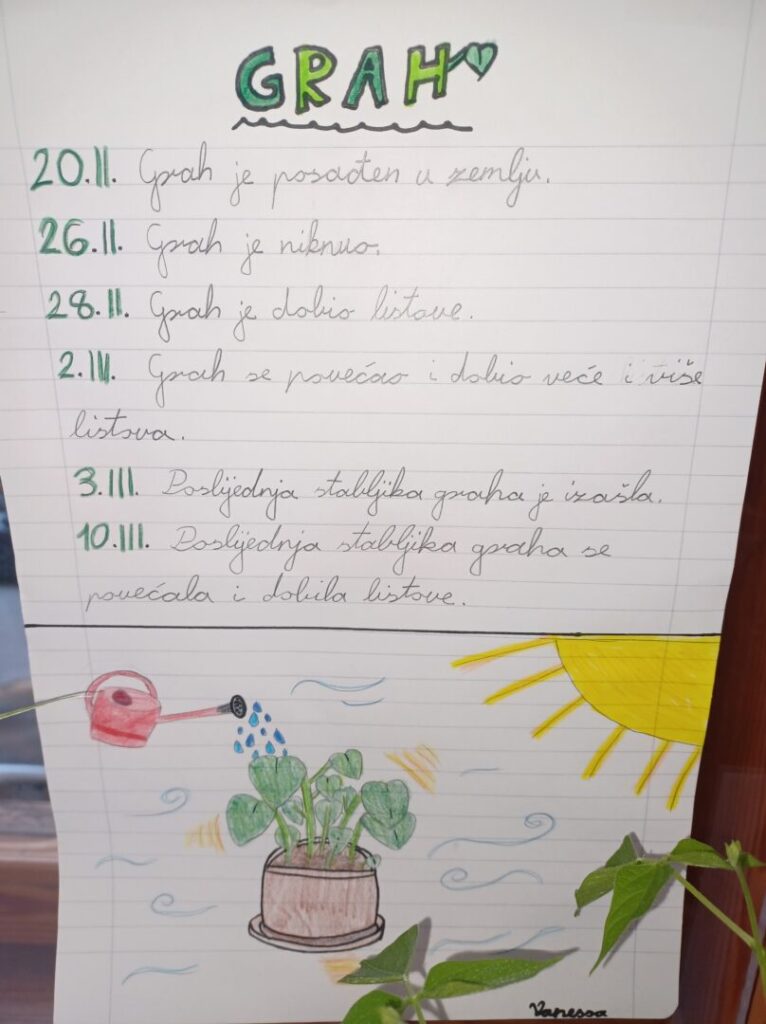 GRAH
20.II. Grah je posađen u zemlju.
26.II. Grah je niknuo.
28.II. Grah je dobio listove.
2.III. Grah se povećao i dobio veće i više
listova.
3.III. Posljednja stabljika graha je izašla.
10.III. Posljednja stabljika graha se
povećala i dobila listove.
Vanessa